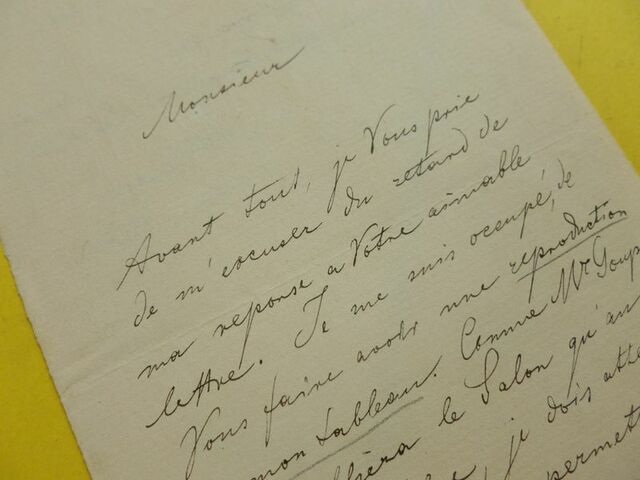 Monsieur
Avant tout, je Vous prie
de m'excuser du retard de
ma reponse a Votre aimable
lettre. Je me suis occupé, de
Vous faire avoir une reproduction
mon tableau. Comme Mr Goup
le Salon qu'au
je dois atte
permet